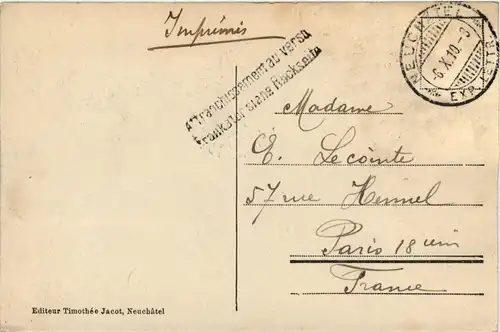 Imprimés
Affranchissement au verso
Frankatur siehe Rückseite
NEUCHATEL
-6.X.10.-9
EXP. LETTR.
Madame
E. Lecointe
57 rue Hermel
Paris 18 em
France
Editeur Timothée Jacot, Neuchâtel